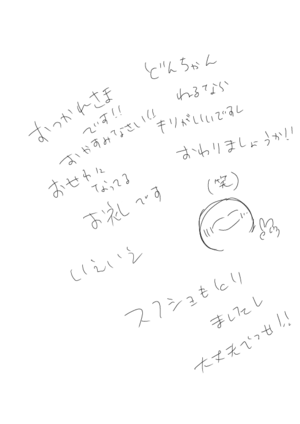 どんちゃん
ねるなら
キリがいいですし
おわりましょうか!!
(笑)
おつかれさま
です!!
おやすみなさい!!
おせわに
なってる
お礼です
いえいえ
スクショもとり
ましたし
大丈夫でっせ!!